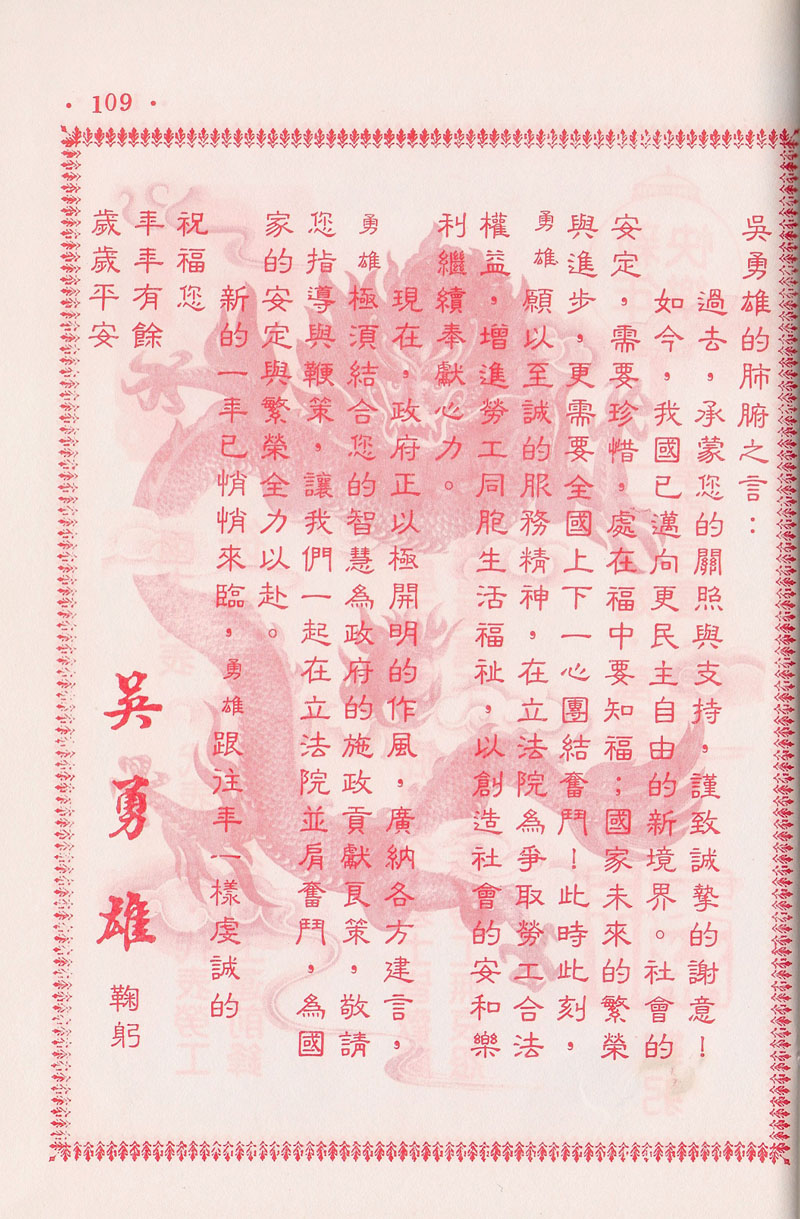 · 109 ·
吳勇雄的肺腑之言：
過去，承蒙您的關照與支持，謹致誠摯的謝意！
如今，我國已邁向更民主自由的新境界。社會的
安定，需要珍惜，處在福中要知福；國家未來的繁榮
與進步，更需要全國上下一心團結奮鬥！此時此刻，
勇雄願以至誠的服務精神，在立法院為爭取勞工合法
權益，增進勞工同胞生活福祉，以創造社會的安和樂
利繼續奉獻心力。
現在，政府正以極開明的作風，廣納各方建言，
勇雄極須結合您的智慧為政府的施政貢獻良策，敬請
您指導與鞭策，讓我們一起在立法院並肩奮鬥，為國
家的安定與繁榮全力以赴。
新的一年已悄悄來臨，勇雄跟往年一樣虔誠的
祝福您
年年有餘
歲歲平安
吳勇雄 鞠躬